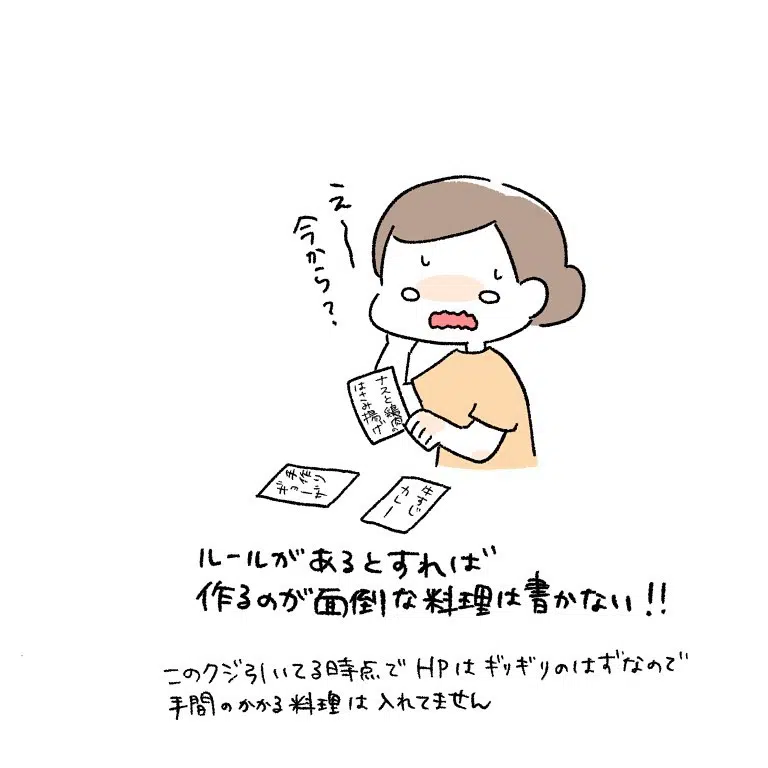 えー
今から?
ナスと鶏肉の
はさみ揚げ
手作り
ぎょーざ
牛すじ
カレー
ルールがあるとすれば
作るのが面倒な料理は書かない!!
このクジ引いてる時点でHPはギリギリのはずなので
手間のかかる料理は入れてません